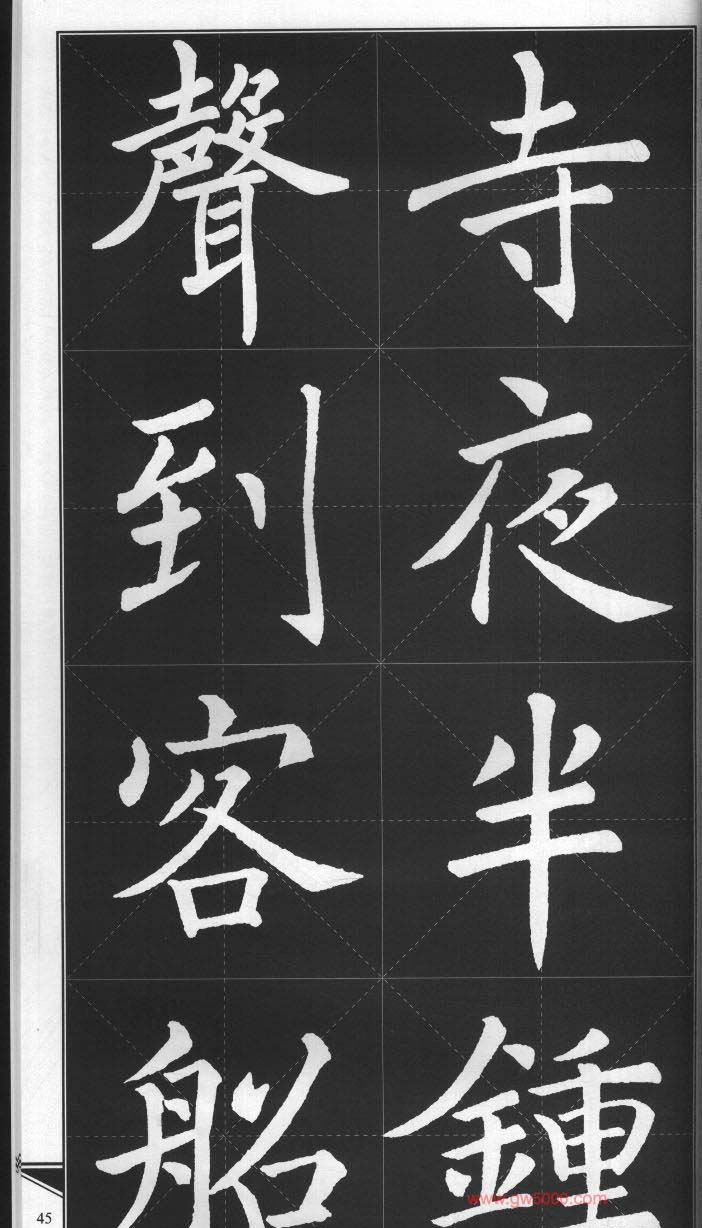 寺夜半鍾
聲到客船
45
www.gw5000.com